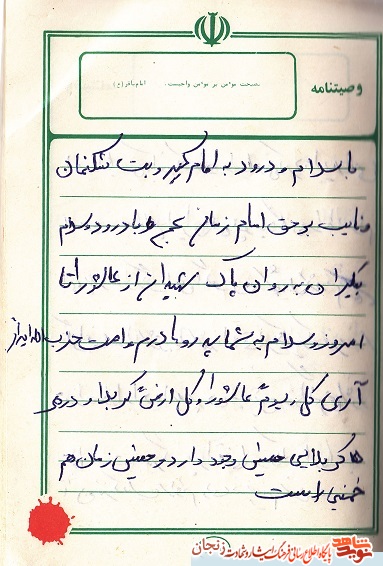 وصیتنامه
نصیحت مؤمن بر مؤمن واجبست. امام باقر (ع)
با سلام و درود به امام کبیر و بت شکنمان
و نایب بر حق امام زمان عج و با درود و سلام
بیکران به روان پاک شهیدان از عاشورا تا
امروز و سلام به شما پدر و مادرم و امت حزب الله ایران
آری کل یوم عاشورا و کل ارض کربلا و در هر
کربلایی حسینی وجود دارد و حسین زمان هم
خمینی است
نوید شاهد
پایگاه اطلاع رسانی فرهنگ ایثار و شهادت زنجان